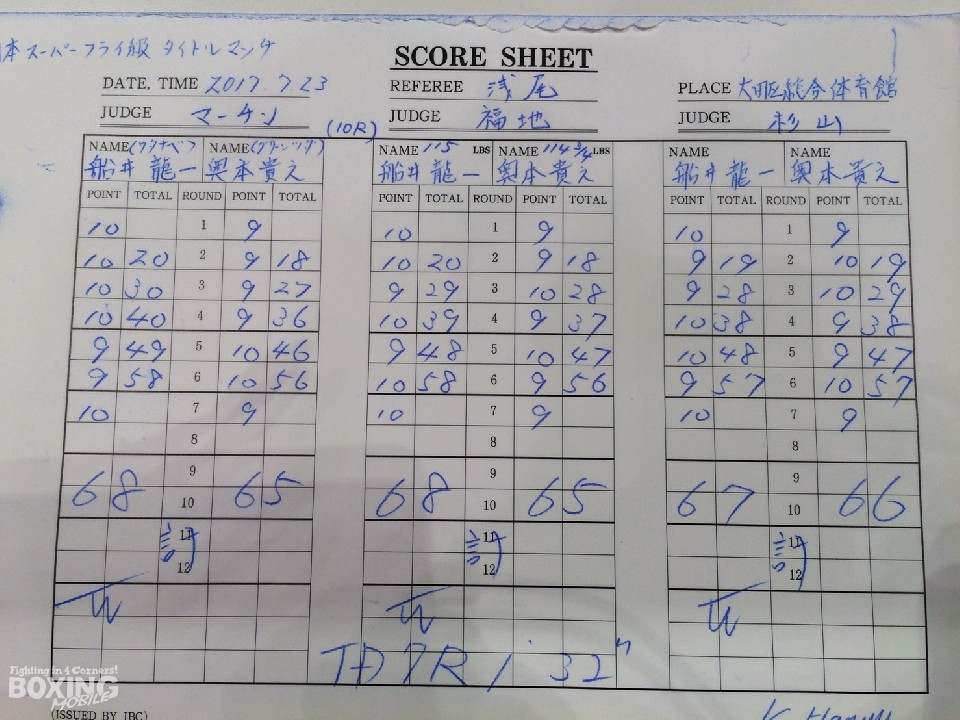 本スーパーフライ級 タイトルマッチ
SCORE SHEET
DATE, TIME 2017.7.23 REFEREE 浅尾 PLACE 大田区総合体育館
JUDGE マーチン (10R) JUDGE 福地 JUDGE 杉山
NAME NAME NAME 115 LBS NAME 114 3/4 LBS NAME NAME
船井龍一 奥本貴之 船井龍一 奥本貴之 船井龍一 奥本貴之
POINT TOTAL ROUND POINT TOTAL POINT TOTAL ROUND POINT TOTAL POINT TOTAL ROUND POINT TOTAL
10 1 9 10 1 9 10 1 9
10 20 2 9 18 10 20 2 9 18 9 19 2 10 19
10 30 3 9 27 9 29 3 10 28 9 28 3 10 29
10 40 4 9 36 10 39 4 9 37 10 38 4 9 38
9 49 5 10 46 9 48 5 10 47 10 48 5 9 47
9 58 6 10 56 10 58 6 9 56 9 57 6 10 57
10 7 9 10 7 9 10 7 9
8 8 8
9 9 9
68 10 65 68 10 65 67 10 66
計 11 計 11 計 11
12 12 12
TD 7R 1'32"
Fighting in 4 Corners!
BOXING
MOBILE
(ISSUED BY JBC)